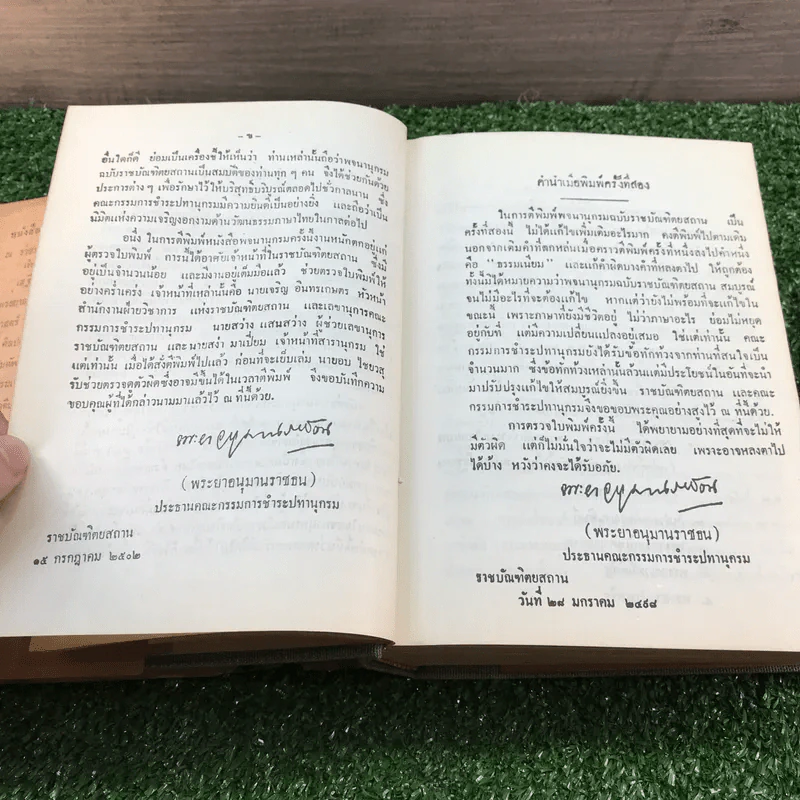 - ข -
อื่นใดก็ดี ย่อมเป็นเครื่องชี้ให้เห็นว่า ท่านเหล่านั้นถือว่าพจนานุกรม
ฉบับราชบัณฑิตยสถานเป็นสมบัติของท่านทุก ๆ คน จึงได้ช่วยกันด้วย
ประการต่าง ๆ เพื่อรักษาไว้ให้บริสุทธิ์บริบูรณ์ตลอดไปชั่วกาลนาน ซึ่ง
คณะกรรมการชำระปทานุกรมมีความยินดีเป็นอย่างยิ่ง และถือว่าเป็น
นิมิตแห่งความเจริญงอกงามด้านวัฒนธรรมภาษาไทยในกาลต่อไป
อนึ่ง ในการตีพิมพ์หนังสือพจนานุกรมครั้งนี้งานหนักตกอยู่แก่
ผู้ตรวจใบพิมพ์ การนี้ได้อาศัยเจ้าหน้าที่ในราชบัณฑิตยสถาน ซึ่งมี
อยู่เป็นจำนวนน้อย และมีงานอยู่เต็มมือแล้ว ช่วยตรวจใบพิมพ์ให้
อย่างคร่ำเคร่ง เจ้าหน้าที่เหล่านั้นคือ นายเจริญ อินทรเกษตร หัวหน้า
สำนักงานฝ่ายวิชาการ แห่งราชบัณฑิตยสถาน และเลขานุการคณะ
กรรมการชำระปทานุกรม นายสว่าง แสนสว่าง ผู้ช่วยเลขานุการ
ราชบัณฑิตยสถาน และนายสง่า มาเปี่ยม เจ้าหน้าที่สารานุกรม ใช่
แต่เท่านั้น เมื่อได้สั่งตีพิมพ์ไปแล้ว ก่อนที่จะเย็บเล่ม นายอบ ไชยวสุ
รับช่วยตรวจดูตัวผิดซึ่งอาจมีขึ้นได้ในเวลาตีพิมพ์ จึงขอบันทึกความ
ขอบคุณผู้ที่ได้กล่าวนามมาแล้วไว้ ณ ที่นี้ด้วย.
(พระยาอนุมานราชธน)
ประธานคณะกรรมการชำระปทานุกรม
ราชบัณฑิตยสถาน
๑๕ กรกฎาคม ๒๕๐๒
คำนำเมื่อพิมพ์ครั้งที่สอง
ในการตีพิมพ์พจนานุกรมฉบับราชบัณฑิตยสถาน เป็น
ครั้งที่สองนี้ ไม่ได้แก้ไขเพิ่มเติมอะไรมาก คงตีพิมพ์ไปตามเดิม
นอกจากเติมคำที่ตกหล่นเมื่อคราวตีพิมพ์ครั้งที่หนึ่งลงไปคำหนึ่ง
คือ “ธรรมเนียม” และแก้คำผิดบางคำที่หลงตาไป ให้ถูกต้อง
ทั้งนี้มิได้หมายความว่าพจนานุกรมฉบับราชบัณฑิตยสถาน สมบูรณ์
จนไม่มีอะไรที่จะต้องแก้ไข หากแต่ว่ายังไม่พร้อมที่จะแก้ไขใน
ขณะนี้ เพราะภาษาที่ยังมีชีวิตอยู่ ไม่ว่าภาษาอะไร ย่อมไม่หยุด
อยู่กับที่ แต่มีความเปลี่ยนแปลงอยู่เสมอ ใช่แต่เท่านั้น คณะ
กรรมการชำระปทานุกรมยังได้รับข้อทักท้วงจากท่านที่สนใจเป็น
จำนวนมาก ซึ่งข้อทักท้วงเหล่านั้นล้วนแต่มีประโยชน์ในอันที่จะนำ
มาปรับปรุงแก้ไขให้สมบูรณ์ยิ่งขึ้น ราชบัณฑิตยสถาน และคณะ
กรรมการชำระปทานุกรมจึงขอขอบพระคุณอย่างสูงไว้ ณ ที่นี้ด้วย.
การตรวจใบพิมพ์ครั้งนี้ ได้พยายามอย่างที่สุดที่จะไม่ให้
มีตัวผิด แต่ก็ไม่มั่นใจว่าจะไม่มีตัวผิดเลย เพราะอาจหลงตาไป
ได้บ้าง หวังว่าคงจะได้รับอภัย.
(พระยาอนุมานราชธน)
ประธานคณะกรรมการชำระปทานุกรม
ราชบัณฑิตยสถาน
วันที่ ๒๘ มกราคม ๒๔๙๘